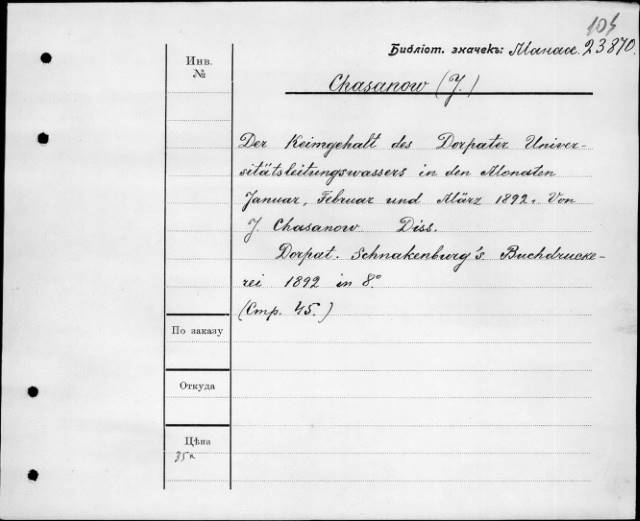 104
Библіот. значекъ: Манах. 23870.
Инв.
№
Chasanow (J.)
Der Keimgehalt des Dorpater Univer-
sitätsleitungswassers in den Monaten
Januar, Februar und März 1892. Von
J. Chasanow. Diss.
Dorpat. Schnakenburg's Buchdrucke-
rei 1892 in 8°
(Стр. 45.)
По заказу
Откуда
Цѣна
35 к